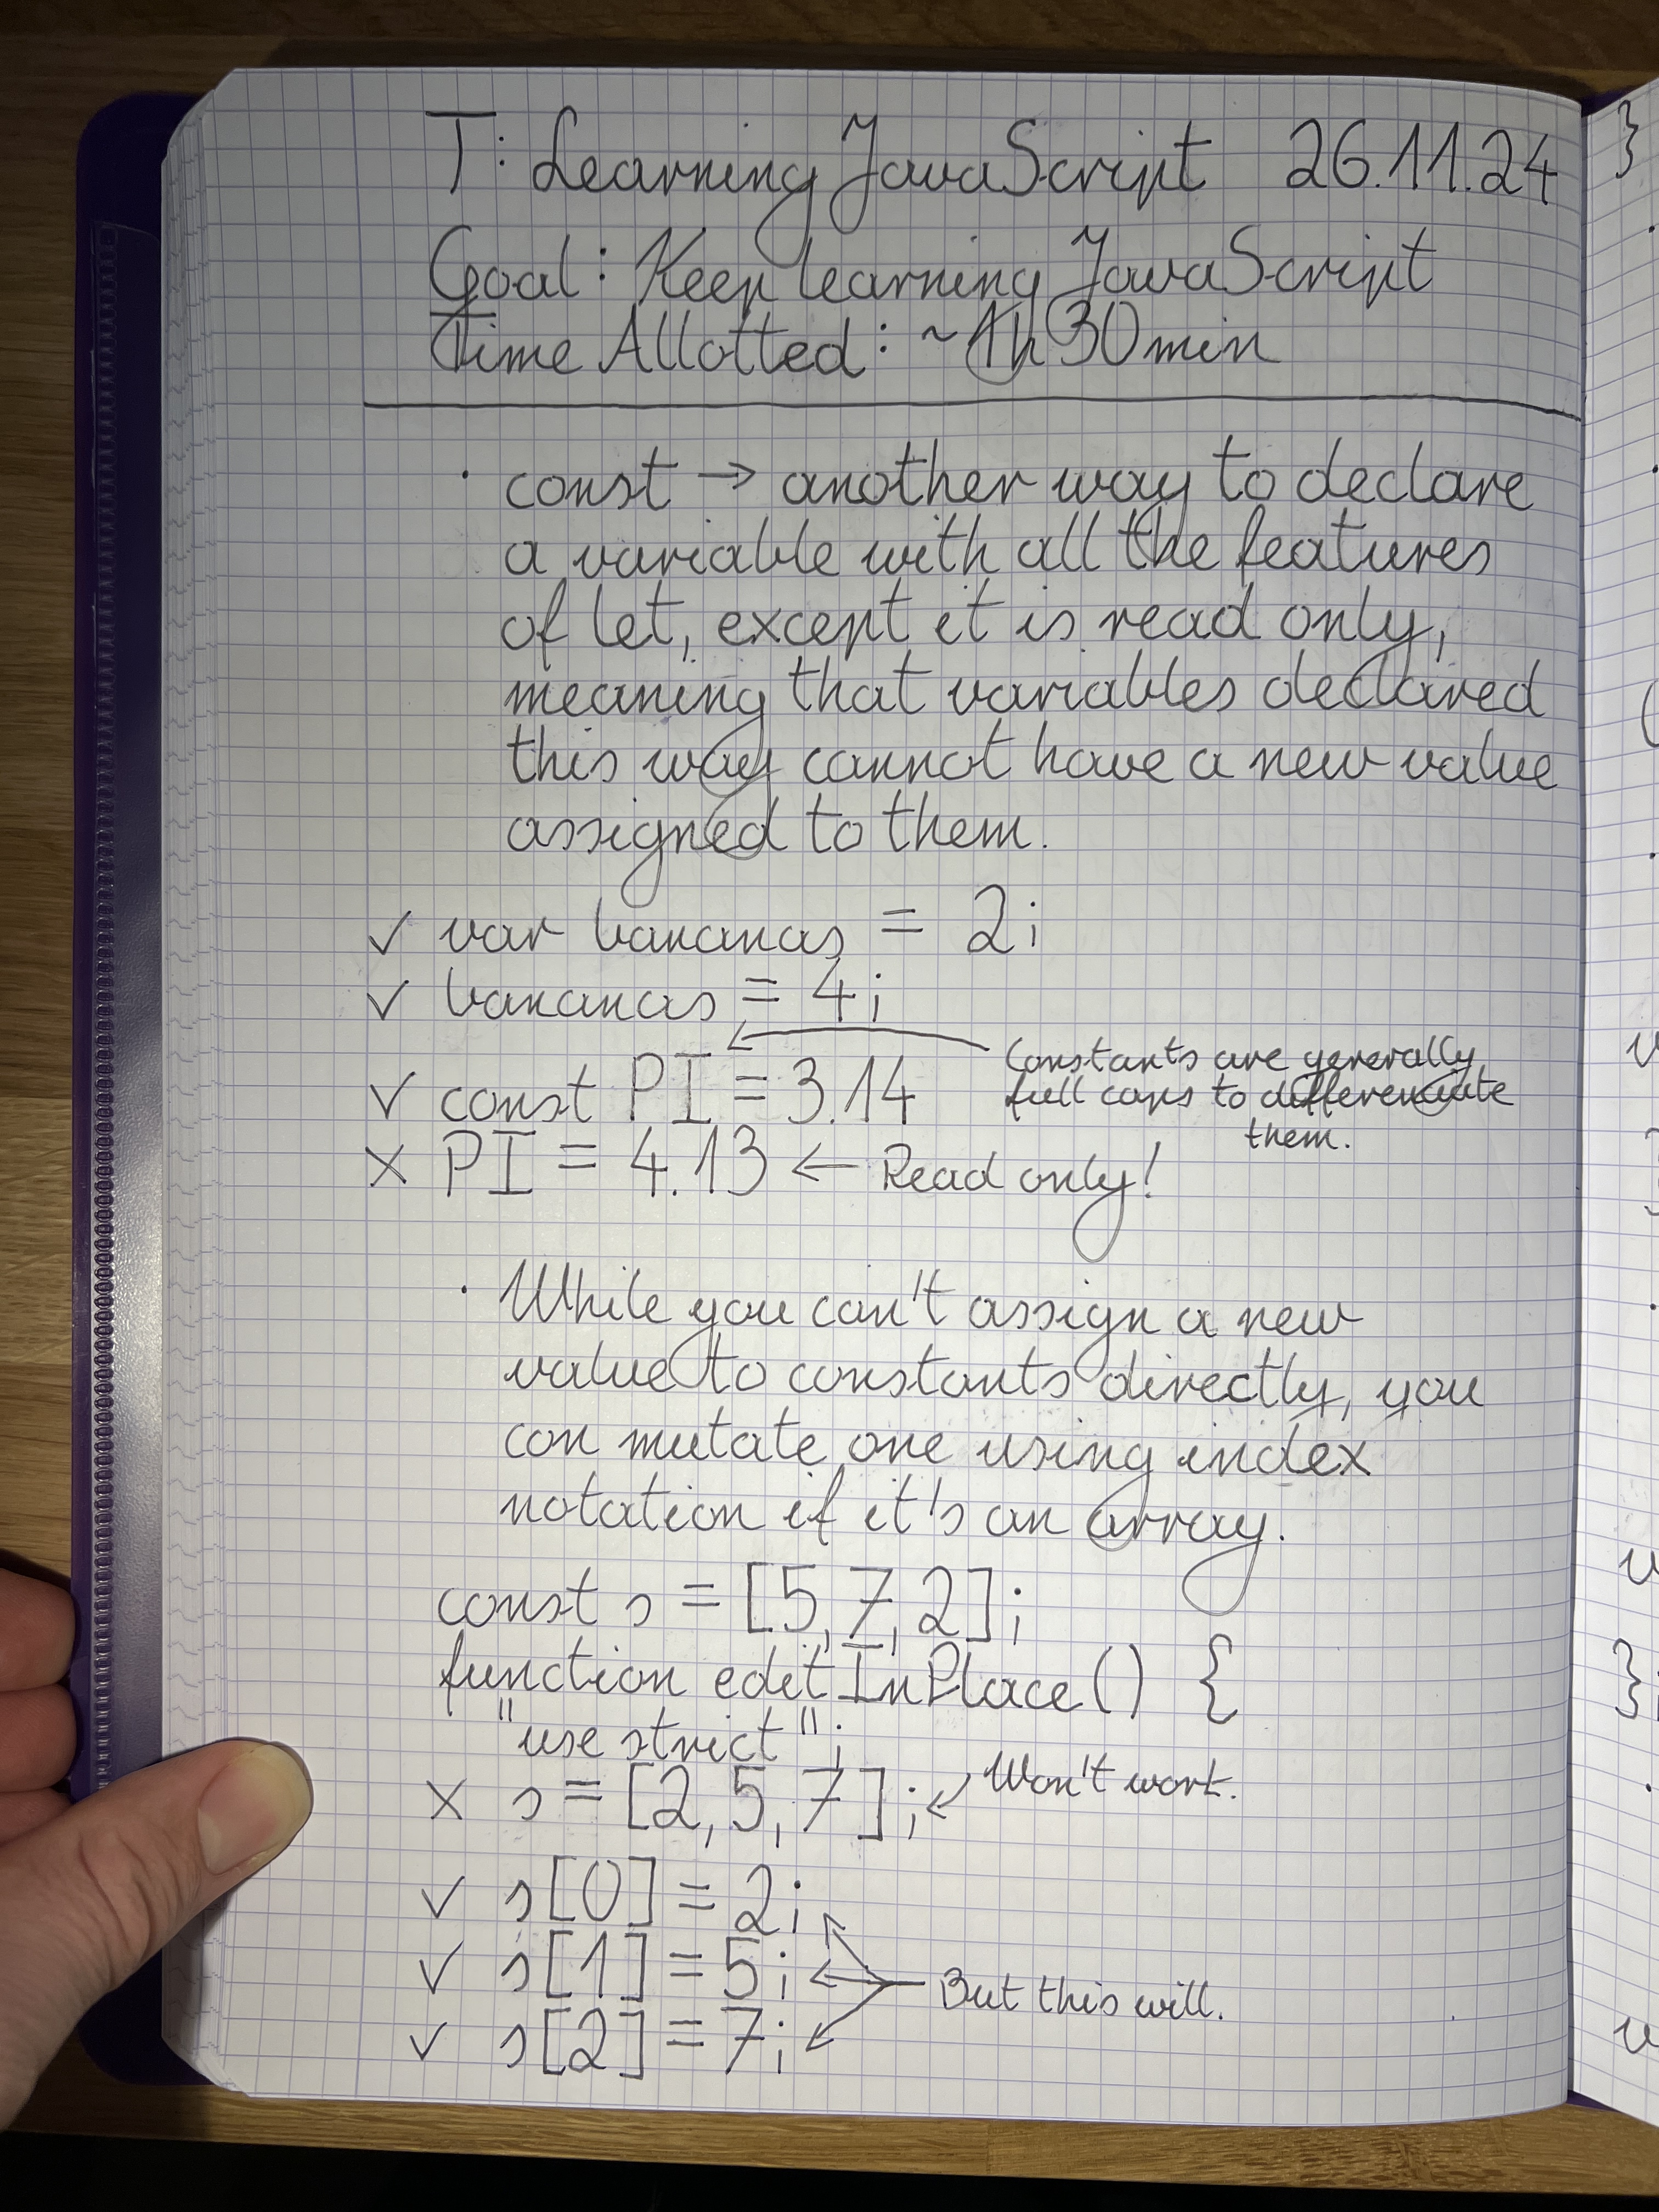 T: Learning JavaScript 26.11.24
Goal: Keep learning JavaScript
Time Allotted: ~1h 30min
· const → another way to declare
a variable with all the features
of let, except it is read only,
meaning that variables declared
this way cannot have a new value
assigned to them.
✓ var bananas = 2;
✓ bananas = 4;
✓ const PI = 3.14
Constants are generally
full caps to differenciate
them.
× PI = 4.13 ← Read only!
· While you can't assign a new
value to constants directly, you
can mutate one using index
notation if it's an array.
const s = [5,7,2];
function editInPlace() {
"use strict";
× s = [2,5,7]; ← Won't work.
✓ s[0] = 2;
✓ s[1] = 5; ← But this will.
✓ s[2] = 7;
}
(
}
};